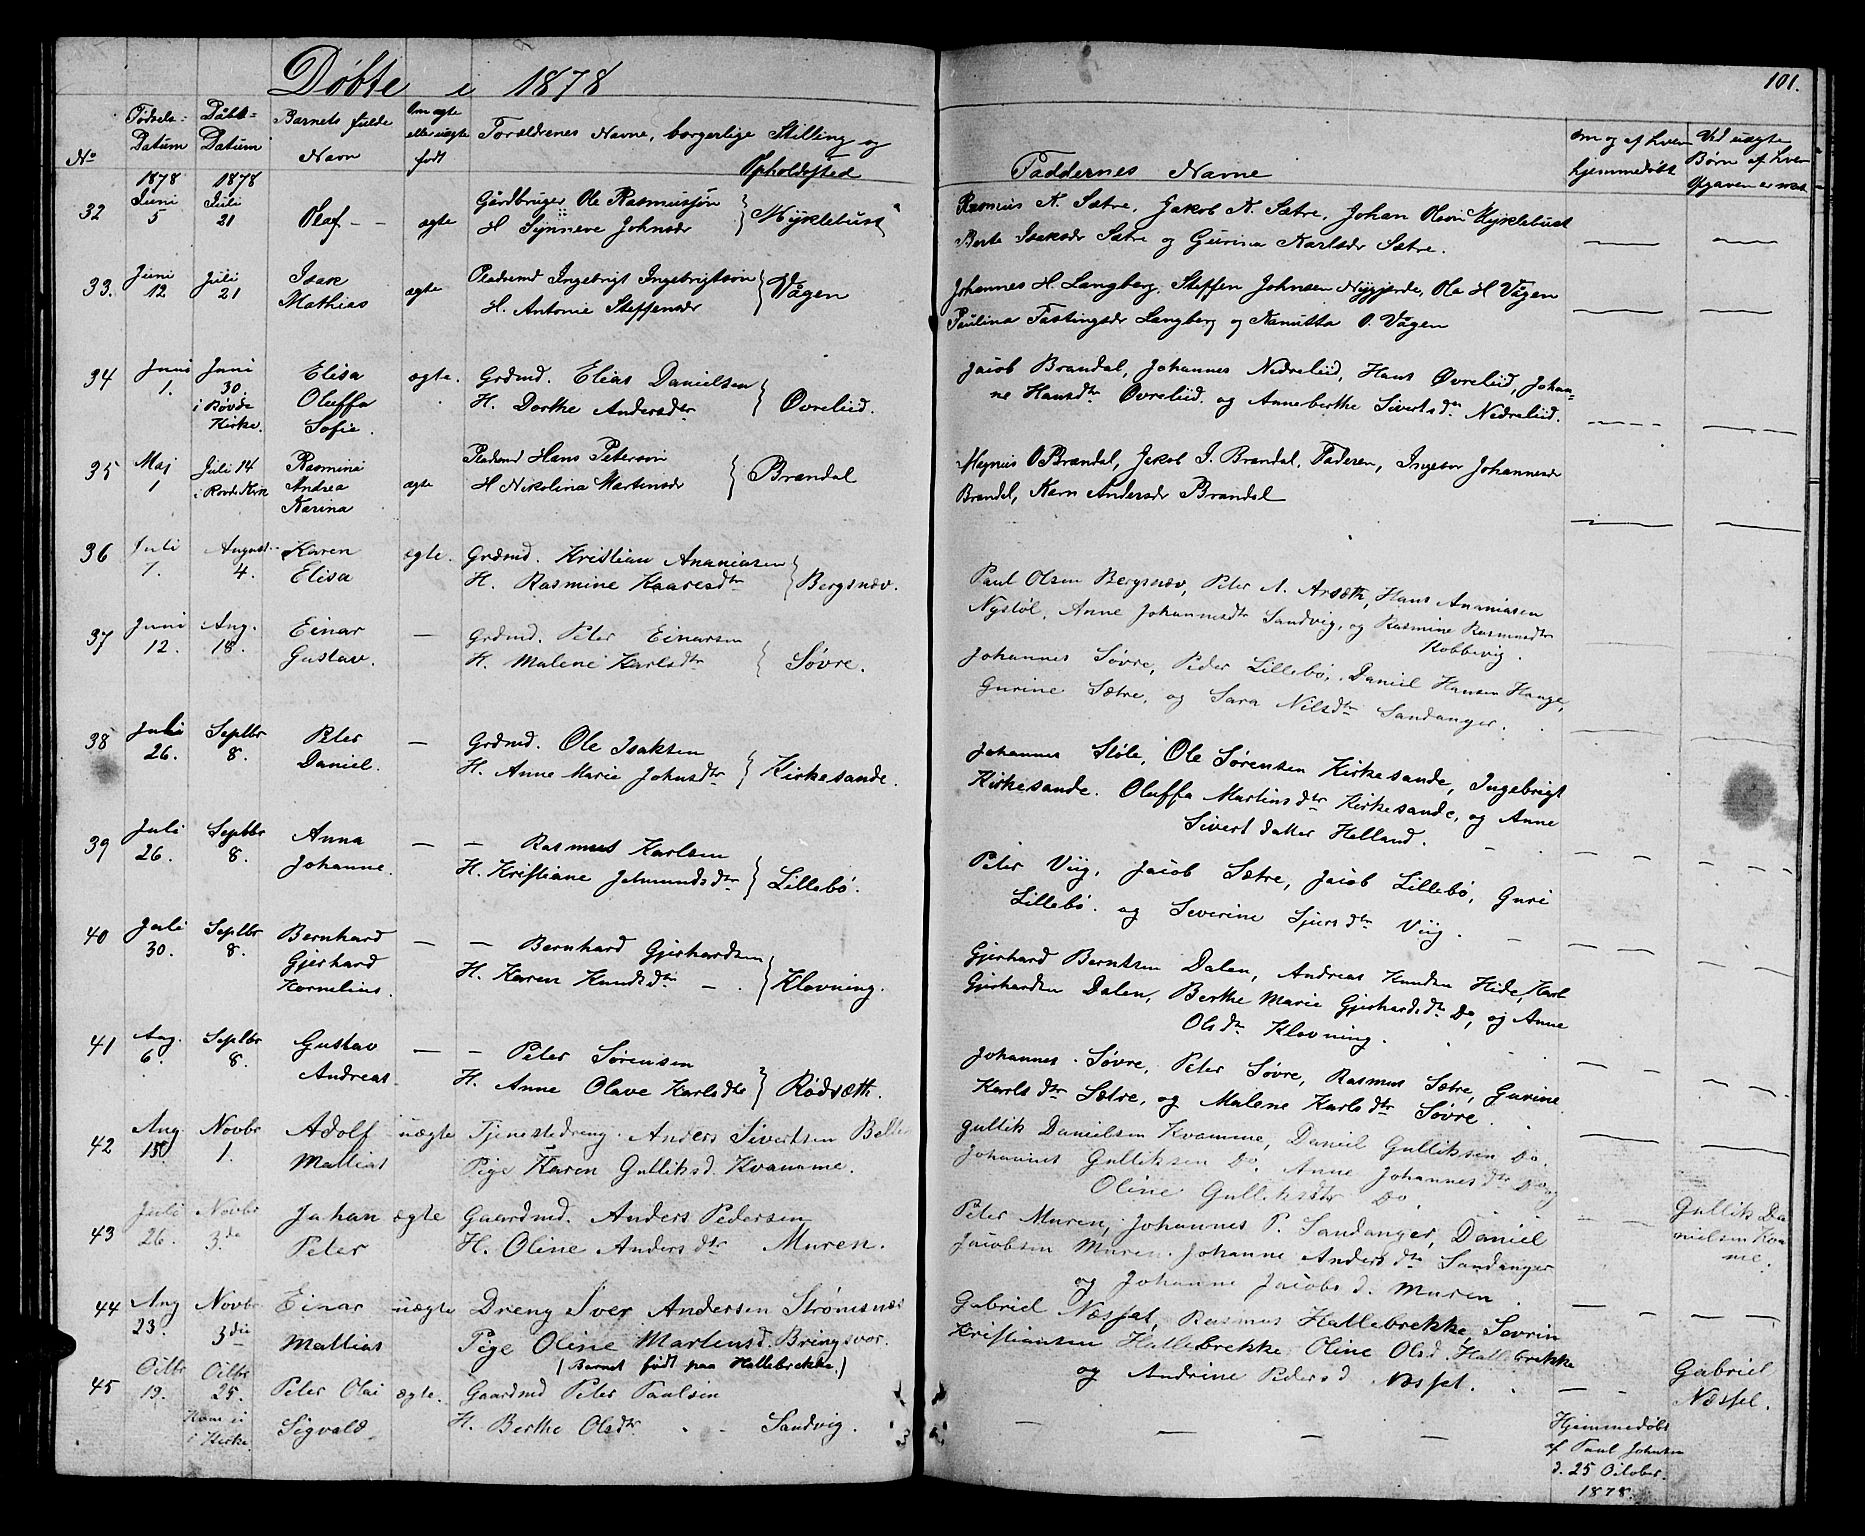 Døbte i 1878
101.
No
Fødsels-Datum
Døbte-Datum
Barnets fulde Navn
Om ægte eller uægte født
Forældrenes Navne, borgerlige Stilling og Opholdssted
Faddernes Navne
om og af hvem hjemmedøbt
Ved uægte Børn af hvem
1878 1878
32 Juni 5 Juli 21 Olaf ægte Gårdbruger Ole Rasmussøn
H Synneve Johnsdr } Myklebust
Rasmus K. Sætre, Jakob K. Sætre, Johan Olsen Myklebust
Berte Isaksdr Sætre og Gurina Karlsdr Sætre.
33. Juni 12 Juli 21 Isak Mathias ægte Pladsmd Ingebrigt Ingebrigtsøn
H. Antonie Steffensdr } Vågen
Johannes H. Langberg, Steffen Johnsen Nygjerde, Ole H Vågen
Paulina Fastingsdr Langberg og Nanutta O. Vågen
34 Juni 1. Juni 30 i Røvde Kirke. Elisa Oluffa Sofie. ægte. Grdmd. Elias Danielsen
H. Dorthe Andersdtr } Øvreliid.
Jacob Brandal, Johannes Nedreliid, Hans Øvreliid, Johan-
ne Hansdtr Øvreliid. og Anneberthe Sivertsdtr Nedreliid.
35 Maj 1 Juli 14 Rasmine Andrea Karina ægte Pladsmd Hans Petersøn
H Nikolina Martensdr } Brandal
Magnus O Brandal, Jakob I. Brandal, Faderen, Ingebor Johannesdr
Brandal, Karn Andersdr Brandal
36 Juli 7. August 4. Karen Elisa ægte. Grdmd. Kristian Ananiasen
H. Rasmine Kaaresdtr } Bergsnæv.
Paul Olsen Bergsnæv, Peter A. Årsæth, Hans Ananiasen
Nystøl, Anne Johannesdtr Sandvig, og Rasmine Rasmusdtr
Kobbevig.
37 Juni 12. Aug. 18. Einar Gustav. — Grdmd. Peter Einarsen
H. Malene Karlsdtr } Søvre.
Johannes Søvre, Peder Lillebø, Daniel Hansen Hauge,
Gurine Sætre, og Sara Nilsdtr Sandanger.
38 Juli 26. Septbr 8. Peter Daniel. — Grdmd. Ole Isaksen
H. Anne Marie Johnsdtr } Kirkesande.
Johannes Støle, Ole Sørensen Kirkesande, Ingebrigt
Kirkesande. Oluffa Martinsdtr Kirkesande, og Anne
Sivertdatter Helland.
39 Juli 26. Septbr 8. Anna Johanne. — — Rasmus Karlsen
H. Kristiane Johnundsdtr } Lillebø.
Peter Viig, Jacob Sætre, Jacob Lillebø, Guri
Lillebø. og Severine Sjursdtr Viig.
40 Juli 30. Septbr 8. Bernhard Gjerhard Kornelius. — — Bernhard Gjerhardsen
H. Karen Knudsdtr } Klovning.
Gjerhard Berntsen Dalen, Andreas Knudsen Hide, Karl
Gjerhardsen Dalen, Berthe Marie Gjerhardsdtr Do, og Anne
Olsdtr Klovning.
41 Aug. 6. Septbr 8. Gustav Andreas. — — Peter Sørensen
H. Anne Olave Karlsdtr } Rødsæth.
Johannes Søvre, Peter Søvre, Rasmus Sætre, Gurine
Karlsdtr Sætre, og Malene Karlsdtr Søvre.
42 Aug. 15. Novbr 1. Adolf Mattias uægte Tjenestedreng. Anders Sivertsen
Pige Karen Gulliksd. Kvamme.
Gullik Danielsen Kvamme, Daniel Gulliksen Do.
Johannes Gulliksen Do. Anne Johannesdtr Do og
Oline Gulliksdtr Do
Gullik Danielsen Kvamme.
43 Juli 26. Novbr 3. Johan Peter ægte Gaardmd. Anders Pedersen
H. Oline Andersdtr Muren.
Peter Muren, Johannes P. Sandanger, Daniel
Jacobsen Muren. Johanne Andersdtr Sandanger
og Johanne Jacobsd. Muren.
44 Aug 23. Novbr 3die Einar Mattias uægte Dreng Iver Andersen Strømsnes
Pige Oline Martensd. Bringsvor.
(Barnet født paa Hallebrekke.)
Gabriel Næsset, Rasmus Hallebrekke, Sevrin
Kristiansen Hallebrekke, Oline Olsd. Hallebrekke
og Andrine Pedersd Næsset.
Gabriel Næsset.
45 Octbr 19. Octbr 25. Peter Olai Sigvald. ægte. Gaardmd Peter Paulsen
H. Berthe Olsdtr Sandvig.
Hjemmedøbt
af Paul Johnsen
d. 25 October.
1878.